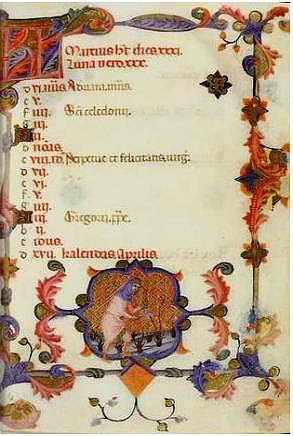 Martius ht dies xxxi.
Luna vero xxx.
d vi. nūs Adriani. mris.
e v.
f iiii. Sci celedonii.
g iii.
d nois.
e viii. id. et felicitatis. virg.
d vii.
e vi.
f v.
g iiii. Gregorii. ppe.
iii.
e ii.
c idus.
d xvii. kalendas Aprilis.